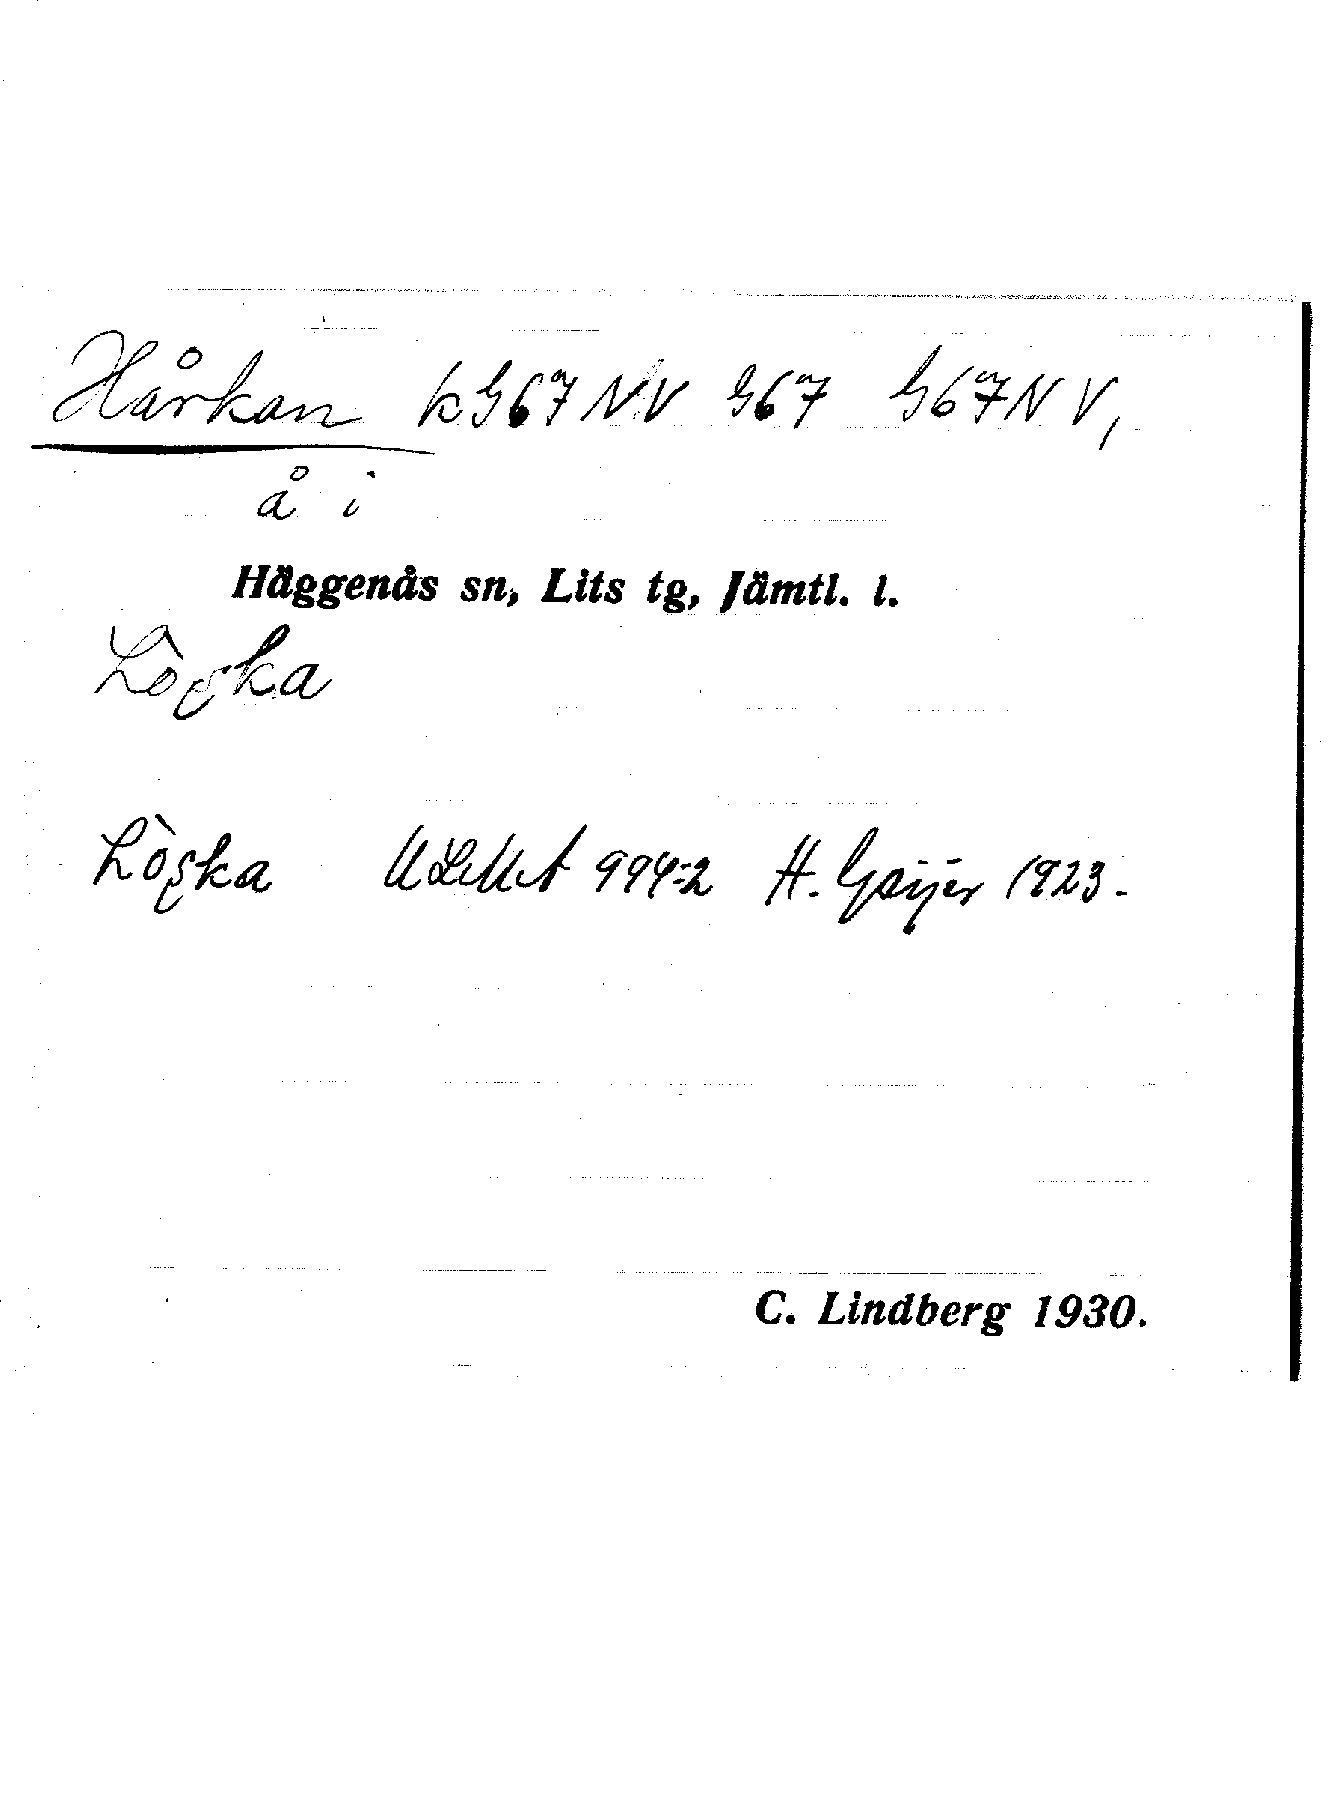 Hårkan k G67 NV G67 G67 N V,
å i
Häggenås sn, Lits tg, Jämtl. l.
ULMA 994:2 H. Geijer 1923.
C. Lindberg 1930.